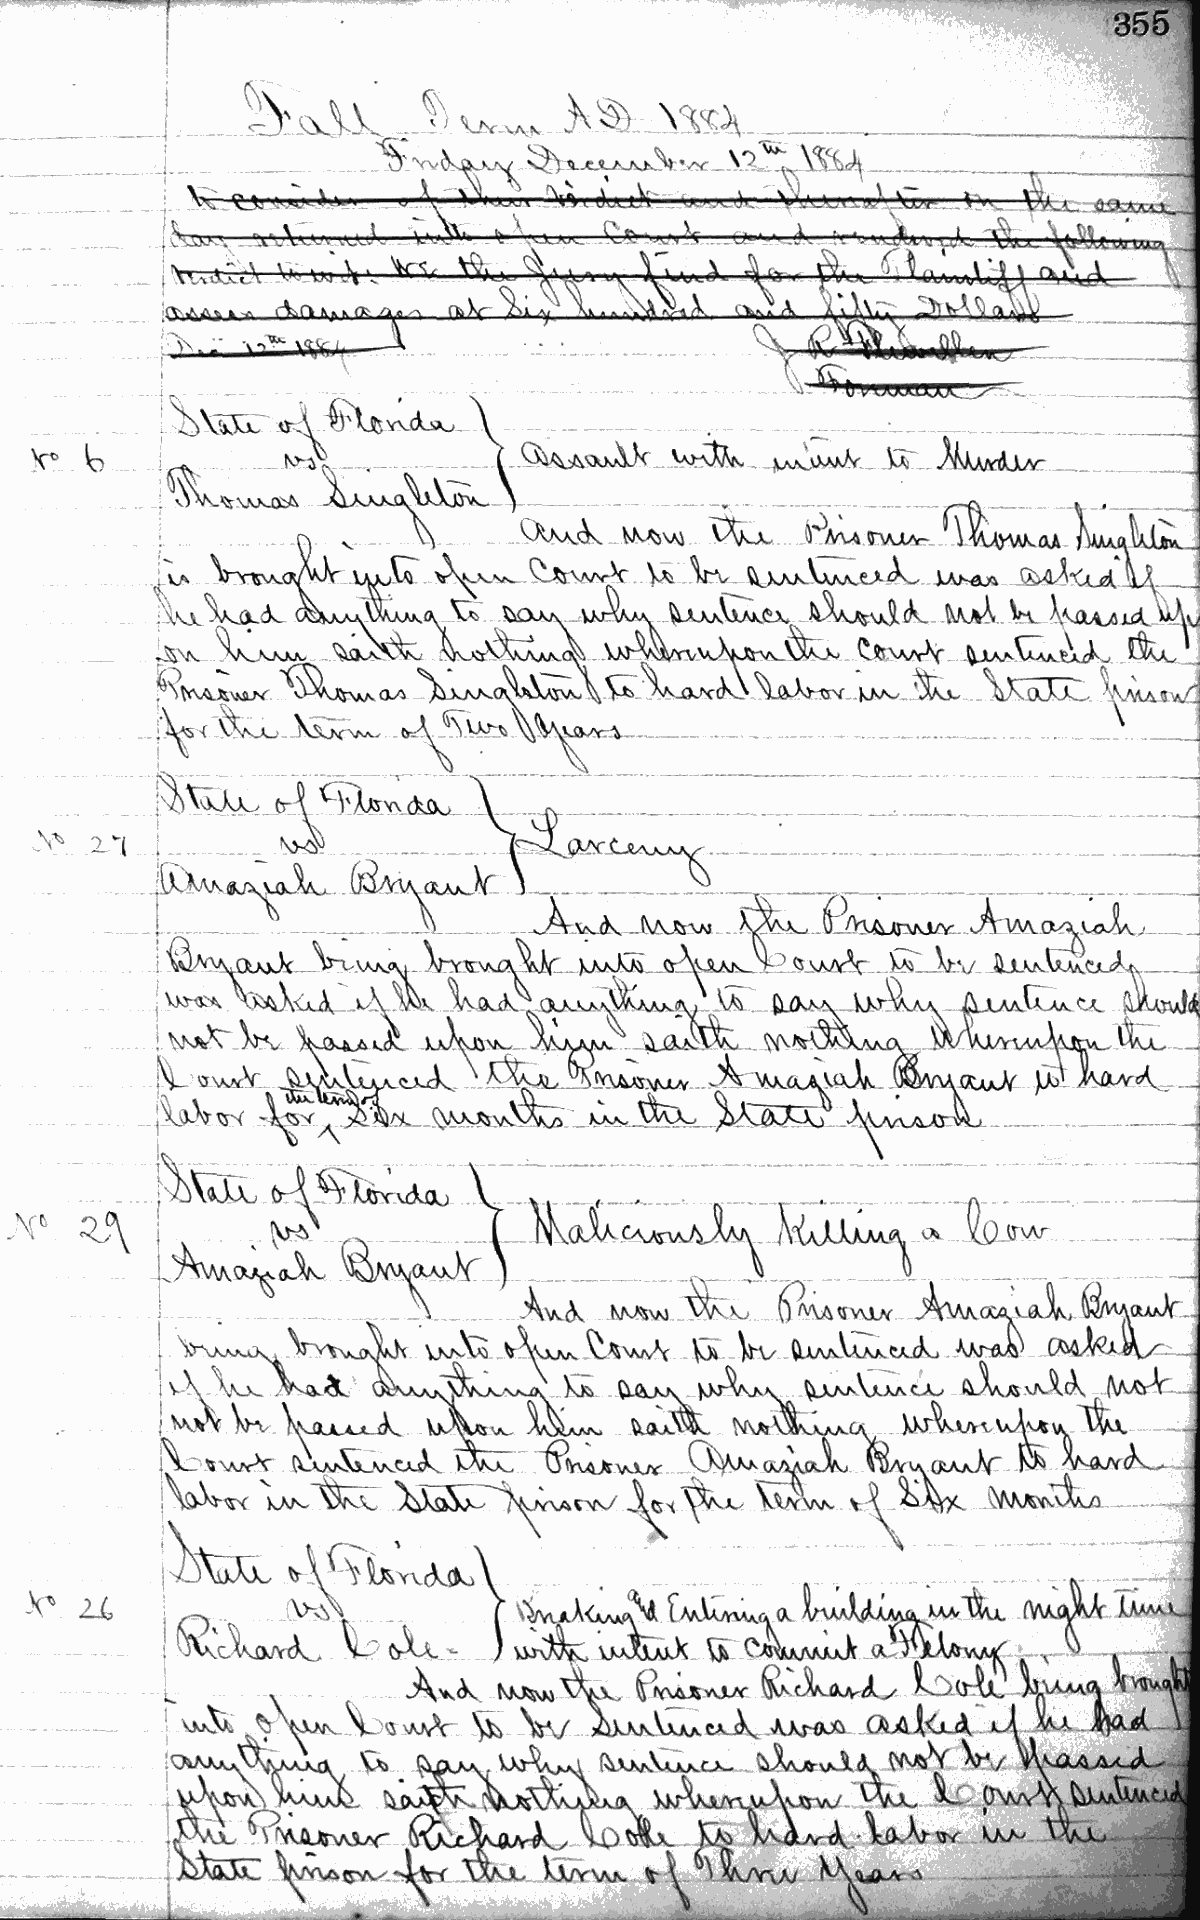 355
Fall Term AD 1884
Friday December 12th 1884
to consider of their verdict and thereafter on the same
day returned into open Court and rendered the following
verdict to wit: We the Jury find for the Plaintiff and
assess damages at Six hundred and fifty Dollars
Dec 12th 1884 J R
Forman
State of Florida
No 6 vs Assault with intent to Murder
Thomas Singleton
And now the Prisoner Thomas Singleton
is brought into open Court to be sentenced was asked if
he had anything to say why sentence should not be passed up
on him saith nothing whereupon the Court sentenced the
Prisoner Thomas Singleton to hard labor in the State prison
for the term of Two Years
State of Florida
No 27 vs Larceny
Amaziah Bryant
And now the Prisoner Amaziah
Bryant being brought into open Court to be sentenced
was asked if he had anything to say why sentence should
not be passed upon him saith nothing Whereupon the
Court sentenced the Prisoner Amaziah Bryant to hard
labor for the term of Six months in the State prison
State of Florida
No 29 vs Maliciously Killing a Cow
Amaziah Bryant
And now the Prisoner Amaziah Bryant
being brought into open Court to be sentenced was asked
if he had anything to say why sentence should not
not be passed upon him saith nothing whereupon the
Court sentenced the Prisoner Amaziah Bryant to hard
labor in the State prison for the term of Six months
State of Florida
No 26 vs Breaking and Entering a building in the night time
Richard Cole with intent to commit a Felony
And now the Prisoner Richard Cole being brought
into open Court to be Sentenced was asked if he had
anything to say why sentence should not be passed
upon him saith nothing whereupon the Court sentenced
the Prisoner Richard Cole to hard labor in the
State prison for the term of Three Years